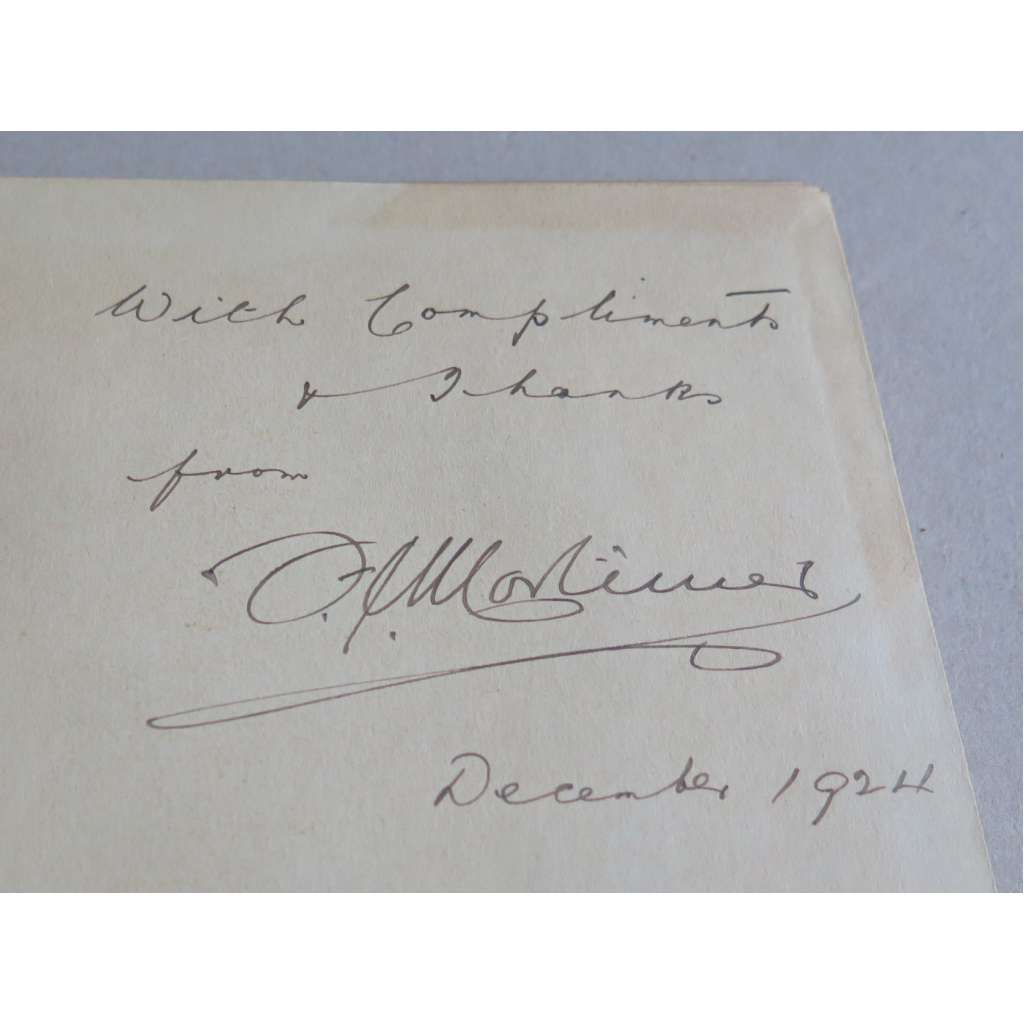 With Compliments
& Thanks
from
F. J. Mortimer
December 1924